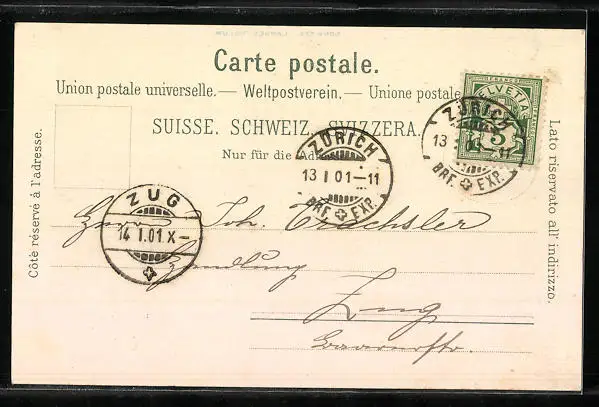 Carte postale.
Union postale universelle. — Weltpostverein. — Unione postale
SUISSE. SCHWEIZ. SVIZZERA.
Nur für die Adresse
Côté réservé à l'adresse.
Lato riservato all' indirizzo.
HELVETIA
5
ZÜRICH
13 11
BRF. EXP.
ZÜRICH
13 I 01-11
BRF. EXP.
ZUG
14 I.01.X-
Herrn Joh. Trachsler
Handlung
Zug